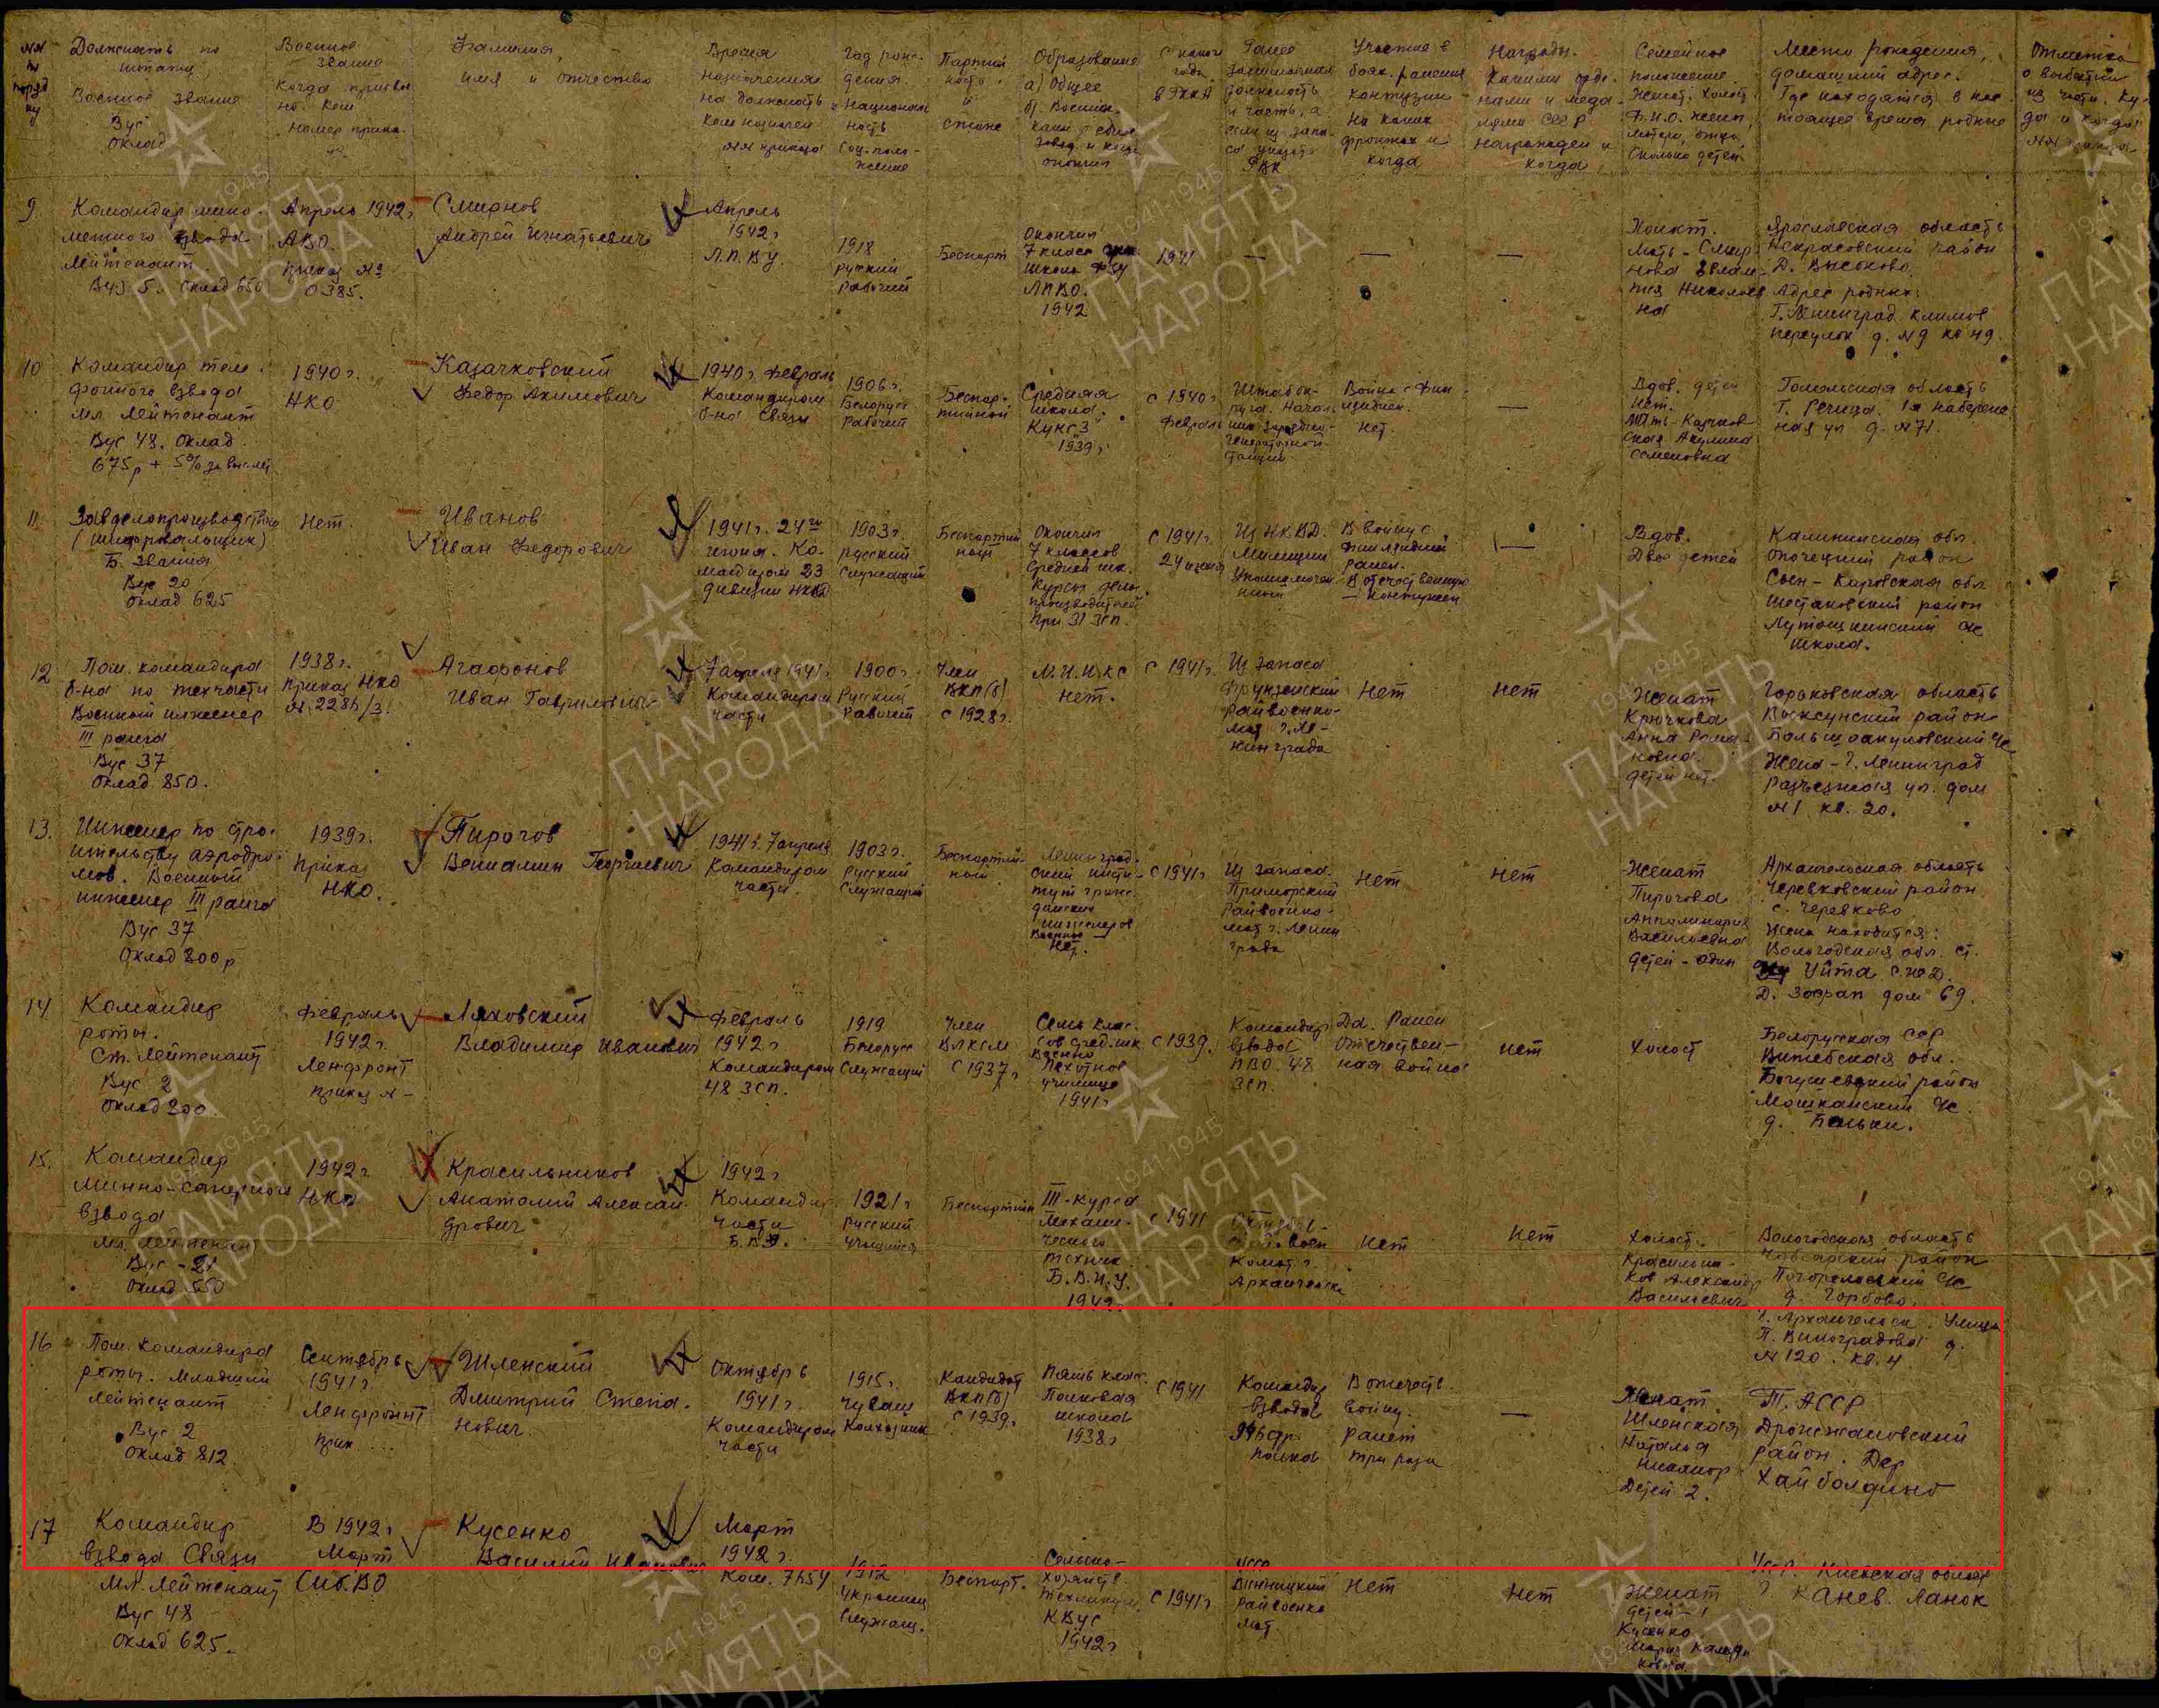 NN по порядку
Должность по штату
Военное звание
Вус
Оклад
Военное звание
Когда присвоено. Кем
Номер приказа
Фамилия,
имя и отчество
Время назначения на должность
Кем назначен
NN приказа
Год рождения
Национальность
Соц. положение
Партийность и стаж
Образование
а) Общее
С какого года в РККА
Участие в боях. ранения контузии
На каких фронтах и когда
Награды.
Какими орденами и медалями СССР
награжден и когда
Семейное положение
Женат, холост
Сколько детей
Место рождения,
домашний адрес.
Где находятся в настоящее время родные
9.
Командир мино-
метного взвода
Лейтенант
Вус 5. Оклад 650
Апрель 1942г
АВО
приказ №
0385.
Смирнов
Андрей Игнатьевич
Апрель
1942г
Л.П.В.У.
1918
русский
рабочий
Беспарт
Окончил
7 класс
школа ФЗУ
ЛПВО.
1942
1941
—
—
—
Холост.
Мать - Смир-
нова
Николаев
на
Ярославская область
Некрасовский район
Д. Высоково.
Адрес родных:
Г. Ленинград Климов
переулок д. №9 кв 49.
10
Командир теле-
фонного взвода
Мл. лейтенант
Вус 48. Оклад
675р + 5%
1940г.
НКО
Казачковский
Федор Акимович
1940г. февраль
Командиром
б-на связи
1906г.
Белорусс
Рабочий
Беспар-
тийный
Средняя
школа.
1939г
С 1940г
февраль
Война с фин-
ляндией.
Нет.
—
Вдов. детей
нет.
Акулина
Семеновна
Гомельская область
Г. Речица. 1я набереж
ная ул д. №71.
11.
Завделопроизводством
(шифровальщик)
Б. звания
Вус 20
Оклад 625
Нет.
Иванов
Иван Федорович
1941г. 24го
июня. Ко-
мандиром 23
дивизии НКВД
1903г.
Русский
Служащий
Беспартий
ный
Окончил
7 классов
Средней шк.
Курсы дело-
производителей
при 31 ЗСП.
С 1941г.
24 июня
Из НКВД.
Милиции
В войну с
Финляндией
ранен.
В отечественную
— контужен
—
Вдов.
Двое детей
Калининская обл.
Опочецкий район
Сын - Кировская обл
Шестаковский район
с/с
школа.
12
Пом. командира
б-на по техчасти
Военный инженер
III ранга
Вус 37
Оклад 850.
1938г.
Приказ НКО
Агафонов
Иван Гаврилович
7 апреля 1941г.
Командиром
части
1900г.
Русский
Рабочий
Член
ВКП(б)
С 1928г.
нет.
С 1941г.
Из запаса
Фрунзенский
Райвоенко-
мат г. Ле-
нинграда
Нет
нет
Женат
Крючкова
Анна Рома-
новна.
детей нет.
Горьковская область
Выксунский район
Жена - г. Ленинград
Разъезжая ул. дом
№1 кв. 20.
13.
Инженер по стро-
ительству аэродро-
мов. Военный
инженер III ранга
Вус 37
Оклад 800р
1939г.
приказ
НКО.
Пирогов
Вениамин Георгиевич
1941г. 7 апреля
Командиром
части.
1903г.
русский
Служащий
Беспартий-
ный
Ленинград-
ский инсти-
тут граж-
данских
инженеров
Военное
нет.
С 1941г
Из запаса.
Приморский
Райвоенко-
мат г. Ленин
града
Нет
нет
Женат
Пирогова
Васильевна
детей - один
Архангельская область
Черевковский район
с. Черевково
Жена находится:
Вологодская обл. ст.
Уйта
дом 69.
14
Командир
роты.
Ст. Лейтенант
Вус 2
Оклад 800
Февраль
1942г
Ленфронт
приказ № -
Ляховский
Владимир Иванович
Февраль
1942г
Командиром
48 ЗСП.
1919
Белорусс
Служащий
Член
ВЛКСМ
С 1937г
Семь клас.
сов сред. шк
Военно
Пехотное
училище
1941г
С 1939.
Командир
взвода
ПВО. 48
ЗСП.
Да. Ранен
Отечествен-
ная война
нет
Холост
Белорусская ССР
Витебская обл.
Богушевский район
Мошканский с/с
15.
Командир
Минно-саперного
взвода
Мл. Лейтенант
Вус - 21
Оклад 550
1942г
НКО
Красильников
Анатолий Алексан-
дрович
1942г
Командир.
части
1921г
Русский
учащийся
Беспартийн
III - курса
Механи-
ческого
техник.
Б.В.И.У.
1942г
С 1941
Архангельск
нет
нет
Холост.
Красильни-
ков Александр
Васильевич
Вологодская область
Чебсарский район
Погореловский с/с
д. Горбово.
г. Архангельск. Улица
П. Виноградова д.
№120. кв. 4.
16
Пом. командира
роты. Младший
лейтенант
Вус 2
Оклад 812.
Сентябрь
1941г.
Ленфронт
прик ...
Шленский
Дмитрий Степа-
нович.
Октябрь
1941г.
Командиром
части
1915г.
Чуваш
Колхозник
Кандидат
ВКП(б)
С 1939г.
Пять клас.
Полковая
школа
1938г
С 1941
Командир
взвода
полков
В отечеств.
войну.
ранен
три раза
—
Женат.
Шленская
Наталья
Никанор
Детей 2.
Т. АССР
Дрожжановский
район. Дер
Хайболдино
17
Командир
взвода Связи
Мл. Лейтенант
Вус 48
Оклад 625.
В 1942г
Март
Сиб.ВО
Кусенко
Василий Иванович
Март
1942г.
1912
Украинец
Служащ.
Беспарт.
Сельско-
хозяйств
техникум
КВУС
1942г
С 1941г.
Винницкий
Райвоенко
мат
Нет
Нет
Женат
детей - 1
Кусенко
Мария
Киевская область
г. Канев.
1941-1945
ПАМЯТЬ
НАРОДА